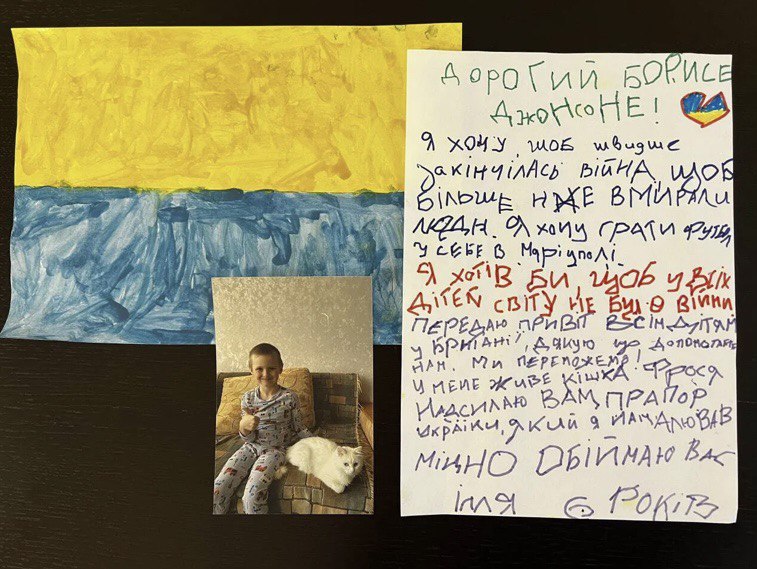 ДОРОГИЙ БОРИСЕ
ДЖОНСОНЕ!
Я ХОЧУ, ЩОБ швидше
закінчілась ВІЙНА, ЩОБ
БІЛЬШЕ НЕ ВМИРАЛИ
ЛЮДИ. Я хочу ГРАТИ ФУТБОЛ
У СЕБЕ В Маріуполі.
Я ХОТІВ БИ, ЩОБ У ВСІХ
ДІТЕЙ СВІТУ НЕ БУЛО ВІЙНИ
ПЕРЕДАЮ ПРИВІТ ВСІМ ДІТЯМ
У БРИТАНІЇ, ДЯКУЮ що ДОПОМАГАЄТЕ
НАМ. МИ ПЕРЕМОЖЕМО!
У МЕНЕ ЖИВЕ КІШКА ФРОСЯ
НАДСИЛАЮ ВАМ ПРАПОР
УКРАЇНИ, ЯКИЙ Я НАМАЛЮВАВ
МІЦНО ОБІЙМАЮ Вас
ІЛЛЯ 6 РОКІВ